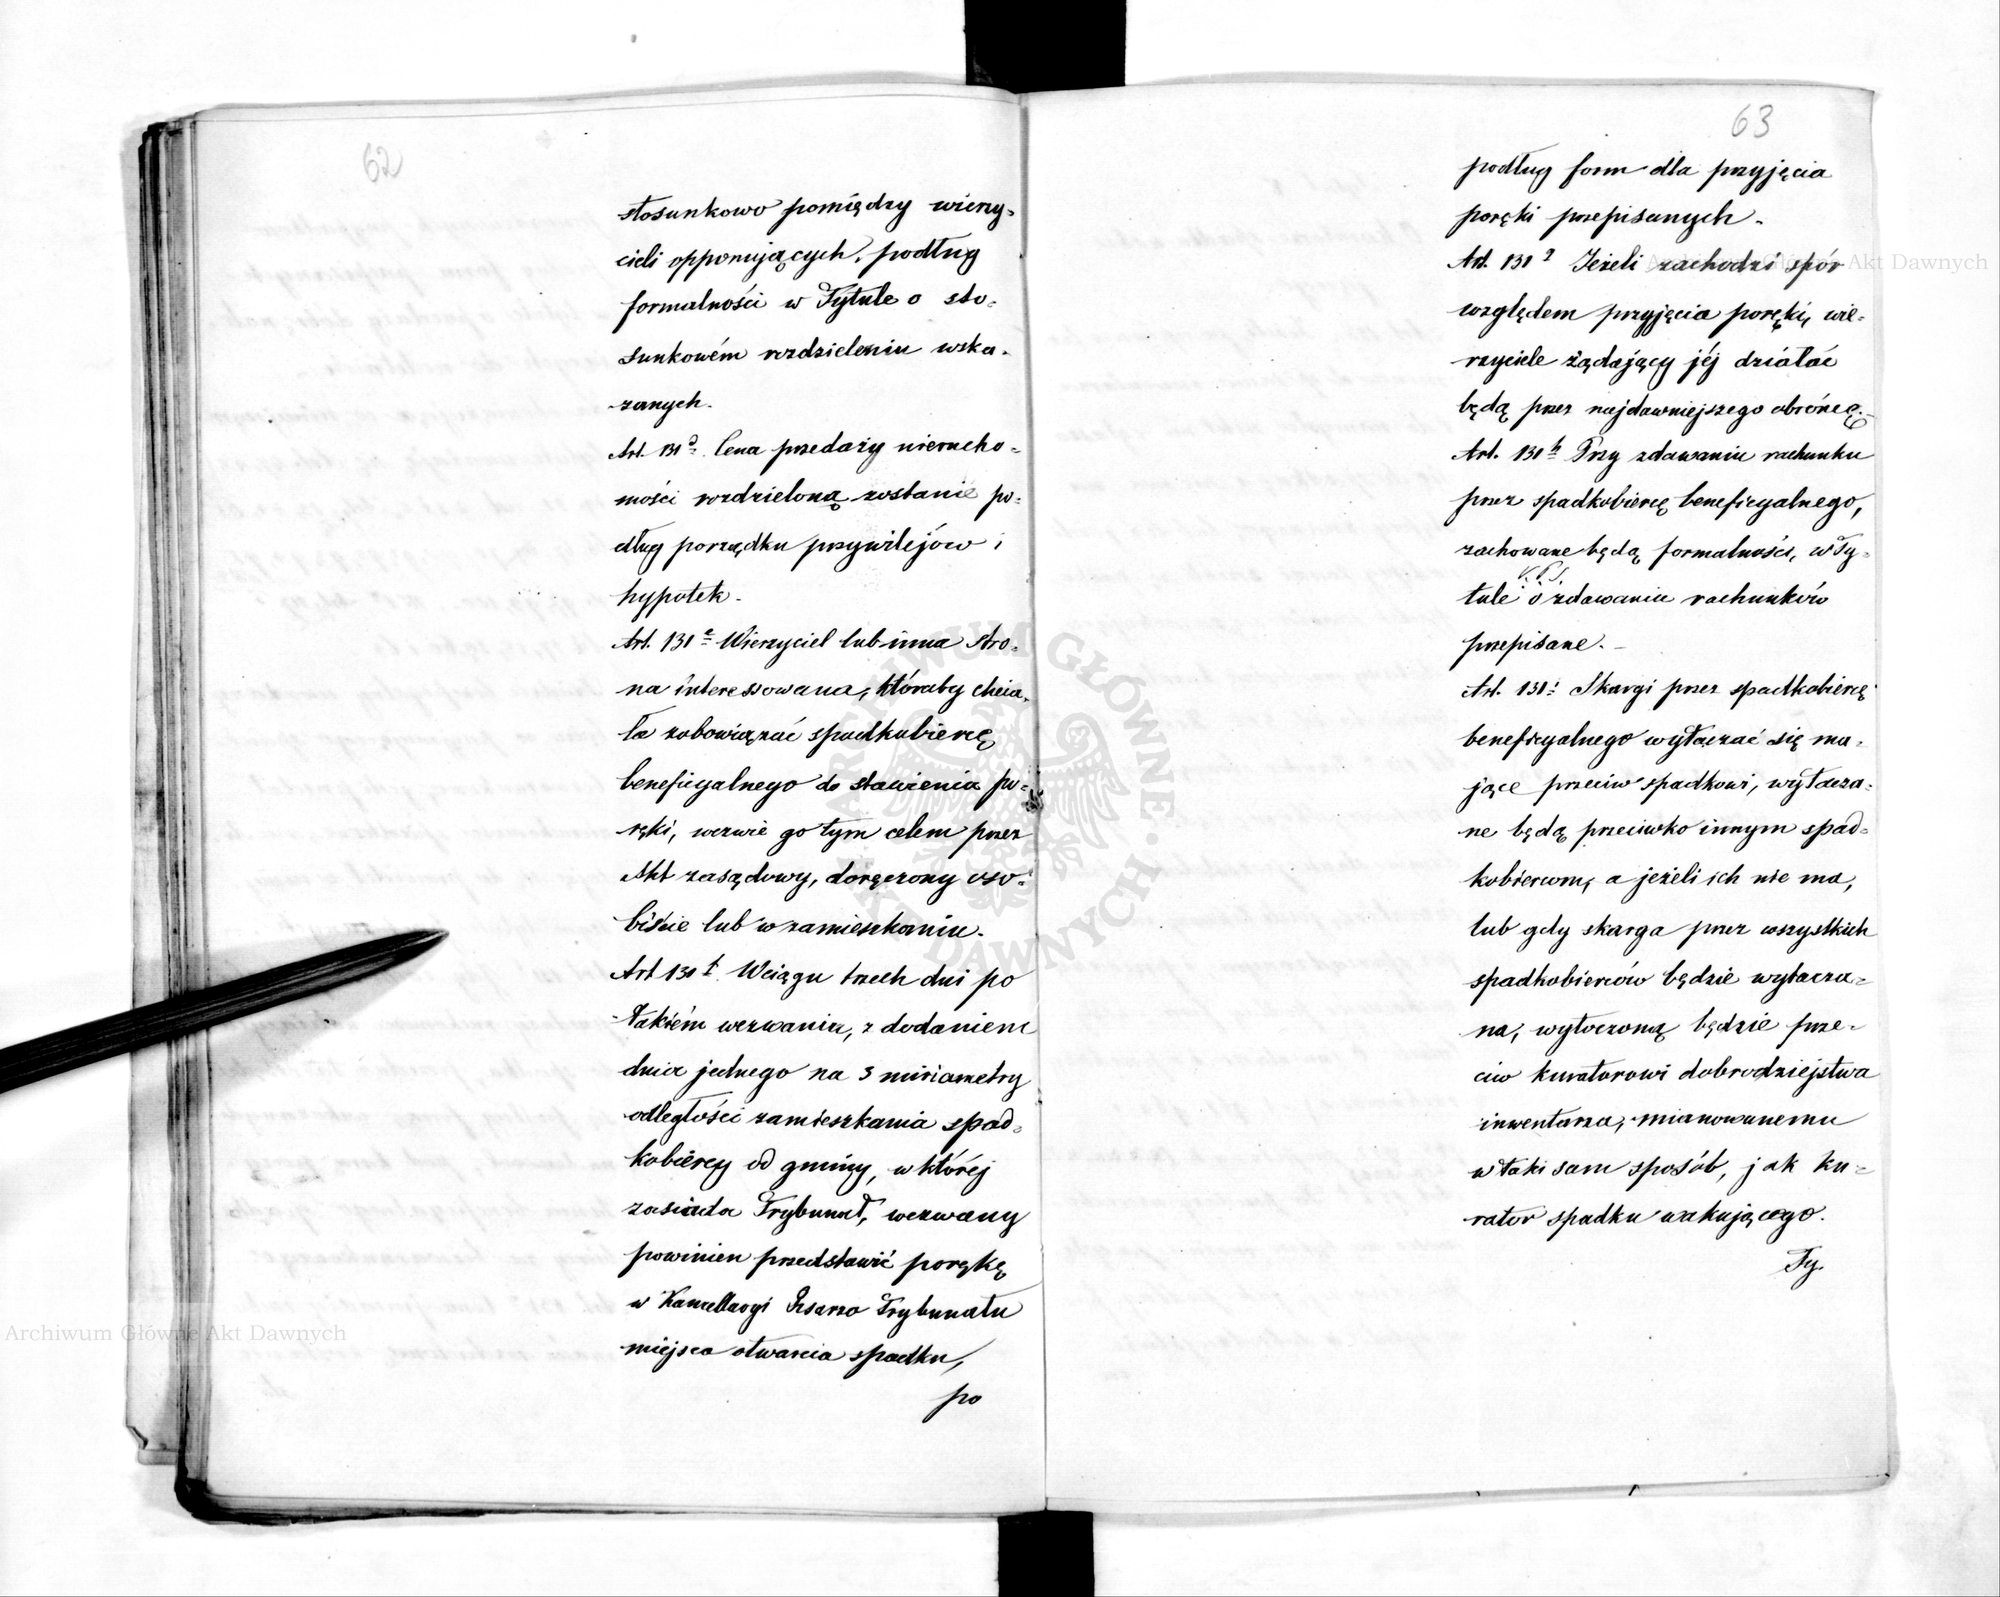 62
stosunkowo pomiędzy wierzy-
cieli opponujących, podług
formalności w Tytule o sto-
sunkowém rozdzieleniu wska-
zanych.
Art. 131 d. Cena przedaży nierucho-
mości rozdzieloną zostanie po-
dług porządku przywilejów i
hypotek.
Art. 131 e Wierzyciel lub inna stro-
na interessowana, któraby chcia-
ła zobowiązać spadkobiercę
beneficyalnego do stawienia po-
ręki, wezwie go tym celem przez
Akt zasądowy, doręczony oso-
biście lub w zamieszkaniu.
Art 131 f. W ciągu trzech dni po
takiém wezwaniu, z dodaniem
dnia jednego na 3 miriametry
odległości zamieszkania spad-
kobiercy od gminy, w któréj
zasiada Trybunał, wezwany
powinien przedstawić porękę
w Kancellaryi Pisarza Trybunału
miejsca otwarcia spadku,
po
63
podług form dla przyjęcia
poręki przepisanych.
Art. 131 g Jeżeli zachodzi spór
względem przyjęcia poręki, wie-
rzyciele żądający jéj działać
będą przez najdawniejszego obrońcę.
Art. 131 h Przy zdawaniu rachunku
przez spadkobiercę beneficyalnego,
zachowane będą formalności, w Ty-
tule o zdawaniu rachunków
przepisane.
Art. 131 i Skargi przez spadkobiercę
beneficyalnego wytaczać się ma-
jące przeciw spadkowi, wytacza-
ne będą przeciwko innym spad-
kobiercom, a jeżeli ich nie ma,
lub gdy skarga przez wszystkich
spadkobierców będzie wytacza-
na, wytoczoną będzie prze-
ciw kuratorowi dobrodziejstwa
inwentarza, mianowanemu
w taki sam sposób, jak ku-
rator spadku wakującego.
Ty.
Archiwum Główne Akt Dawnych
Archiwum Główne Akt Dawnych
ARCHIWUM GŁÓWNE AKT DAWNYCH